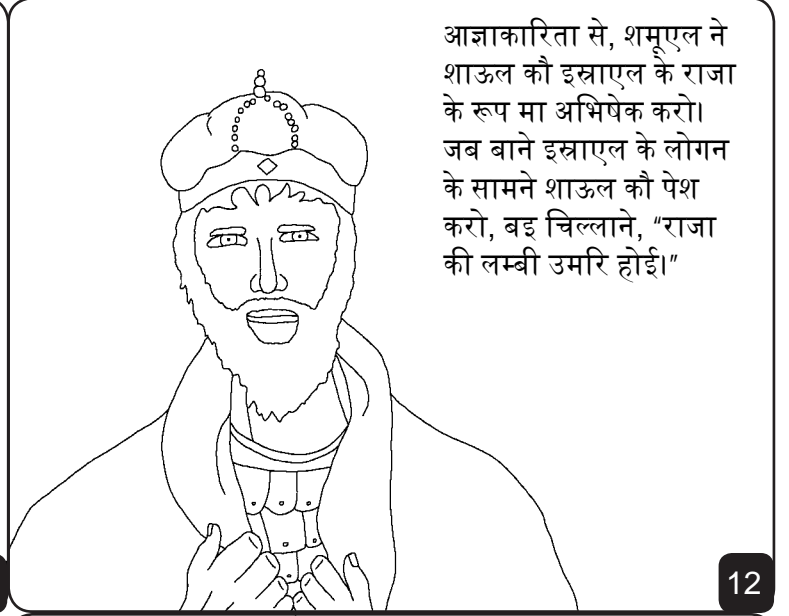 आज्ञाकारिता से, शमूएल ने
शाऊल कौ इस्राएल के राजा
के रूप मा अभिषेक करो।
जब बाने इस्राएल के लोगन
के सामने शाऊल कौ पेश
करो, बइ चिल्लाने, “राजा
की लम्बी उमरि होई।”
12